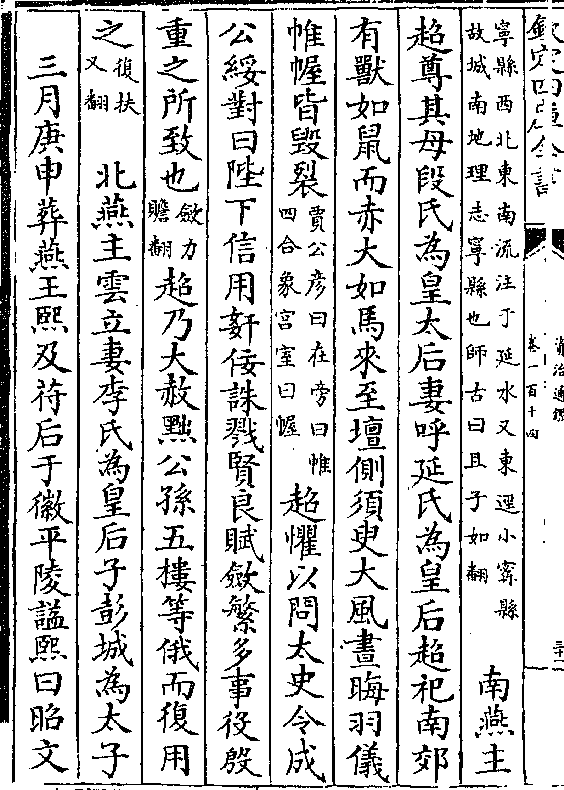 欽定四庫全書
資治通鑑
卷一百十四
寧縣西北東南流注于延水又東逕小寗縣
故城南地理志寧縣也師古曰且子如翻
南燕主
超尊其母段氏為皇太后妻呼延氏為皇后超祀南郊
有獸如鼠而赤大如馬來至壇側須臾大風晝晦羽儀
帷幄皆毀裂
賈公彦曰在旁曰帷
四合象宫室曰幄
超懼以問太史令成
公綏對曰陛下信用姧佞誅戮賢良賦斂繁多事役殷
重之所致也
斂力
贍翻
超乃大赦黜公孫五樓等俄而復用
之
復扶
又翻
北燕主雲立妻李氏為皇后子彭城為太子
三月庚申葬燕王熙及苻后于徽平陵諡熙曰昭文